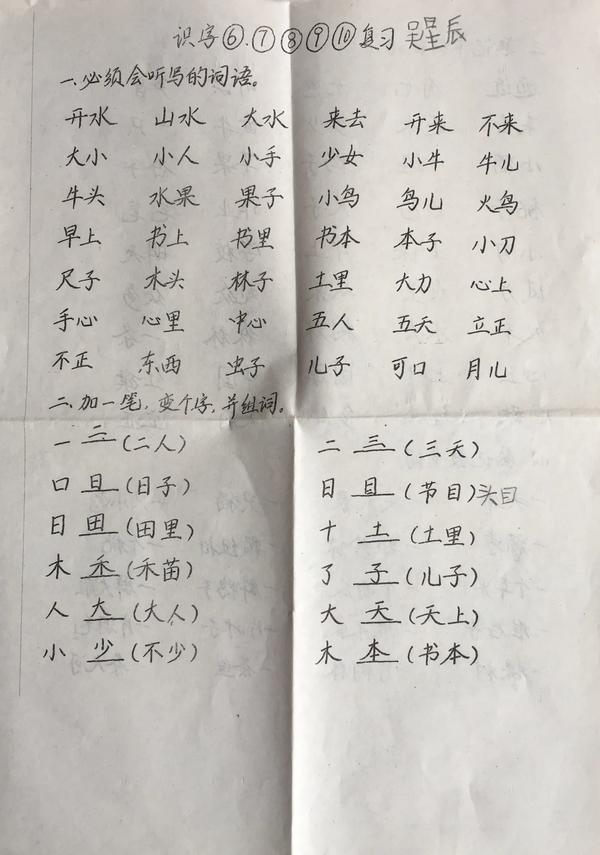 识字⑥.⑦⑧⑨⑩复习 吴星辰
一.必须会听写的词语。
开水 山水 大水 来去 开来 不来
大小 小人 小手 少女 小牛 牛儿
牛头 水果 果子 小鸟 鸟儿 火鸟
早上 书上 书里 书本 本子 小刀
尺子 木头 林子 土里 大力 心上
手心 心里 中心 五人 五天 立正
不正 东西 虫子 儿子 可口 月儿
二.加一笔,变个字,并组词。
一 二 (二人) 二 三 (三天)
口 日 (日子) 日 目 (节目)头目
日 田 (田里) 十 土 (土里)
木 禾 (禾苗) 了 子 (儿子)
人 大 (大人) 大 天 (天上)
小 少 (不少) 木 本 (书本)